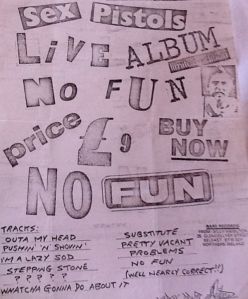 Sex Pistols
LiVE ALBUM
NO FUN
price £9
BUY NOW
NO FUN
TRACKS:
OUTA MY HEAD
PUSHIN' 'N' SHOVIN'
I'M A LAZY SOD
STEPPING STONE
? ? ? ? ?
WHATCHA GONNA DO ABOUT IT
SUBSTITUTE
PRETTY VACANT
PROBLEMS
NO FUN
(WELL NEARLY CORRECT!!)